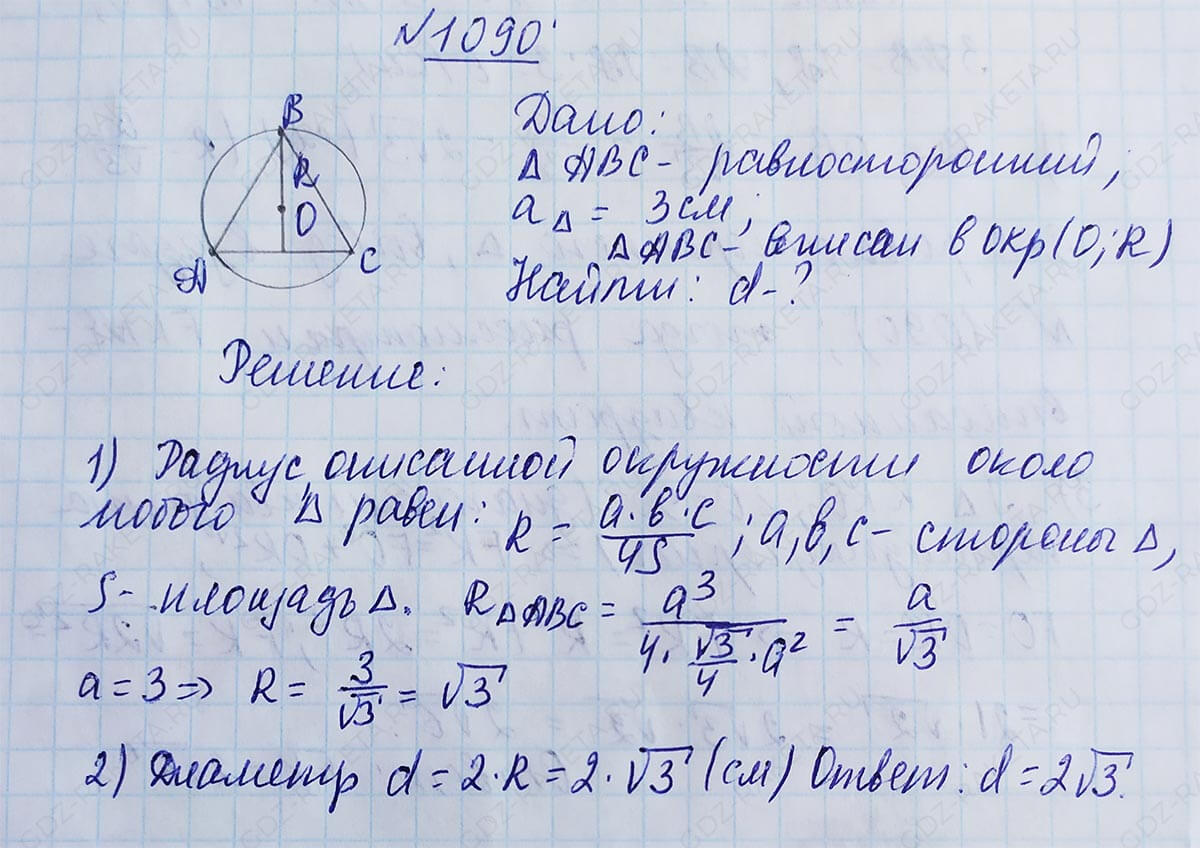 №1090
B
R
O
A
C
Дано:
△ ABC - равносторонний;
a△ = 3см;
△ABC - вписан в окр(O;R)
Найти: d-?
Решение:
1) Радиус описанной окружности около
любого △ равен: R = a·в·c/4S ; a,в,c - стороны △,
S - площадь △. R△ABC = a³/(4·√3/4·a²) = a/√3
a = 3 => R = 3/√3 = √3
2) Диаметр d = 2·R = 2·√3 (см) Ответ: d = 2√3.
GDZ-RAKETA.RU